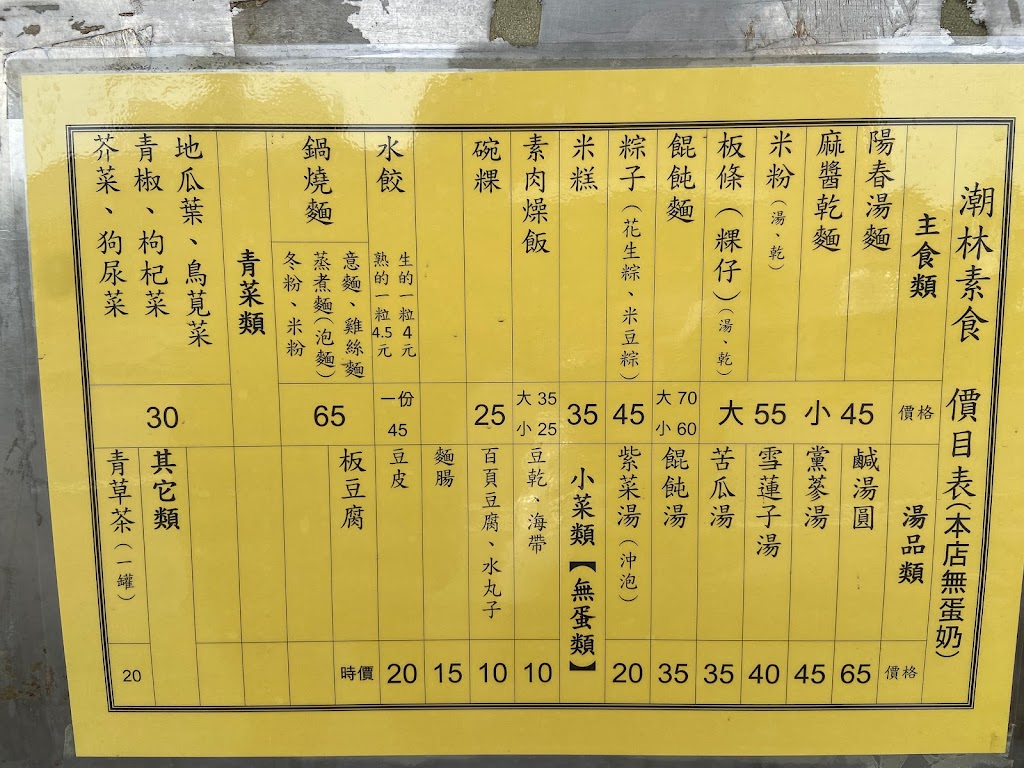 潮林素食 價目表(本店無蛋奶)
主食類
價格
陽春湯麵
麻醬乾麵
米粉(湯、乾)
板條(粿仔)(湯、乾)
大 55 小 45
餛飩麵
大 70
小 60
粽子(花生粽、米豆粽)
45
米糕
35
素肉燥飯
大 35
小 25
碗粿
25
水餃
生的一粒4元
熟的一粒4.5元
一份
45
鍋燒麵
意麵、雞絲麵
蒸煮麵(泡麵)
冬粉、米粉
65
青菜類
地瓜葉、鳥莧菜
青椒、枸杞菜
芥菜、狗尿菜
30
湯品類
價格
鹹湯圓
65
黨蔘湯
45
雪蓮子湯
40
苦瓜湯
35
餛飩湯
35
紫菜湯(沖泡)
20
小菜類【無蛋類】
豆乾、海帶
10
百頁豆腐、水丸子
10
麵腸
15
豆皮
20
板豆腐
時價
其它類
青草茶(一罐)
20